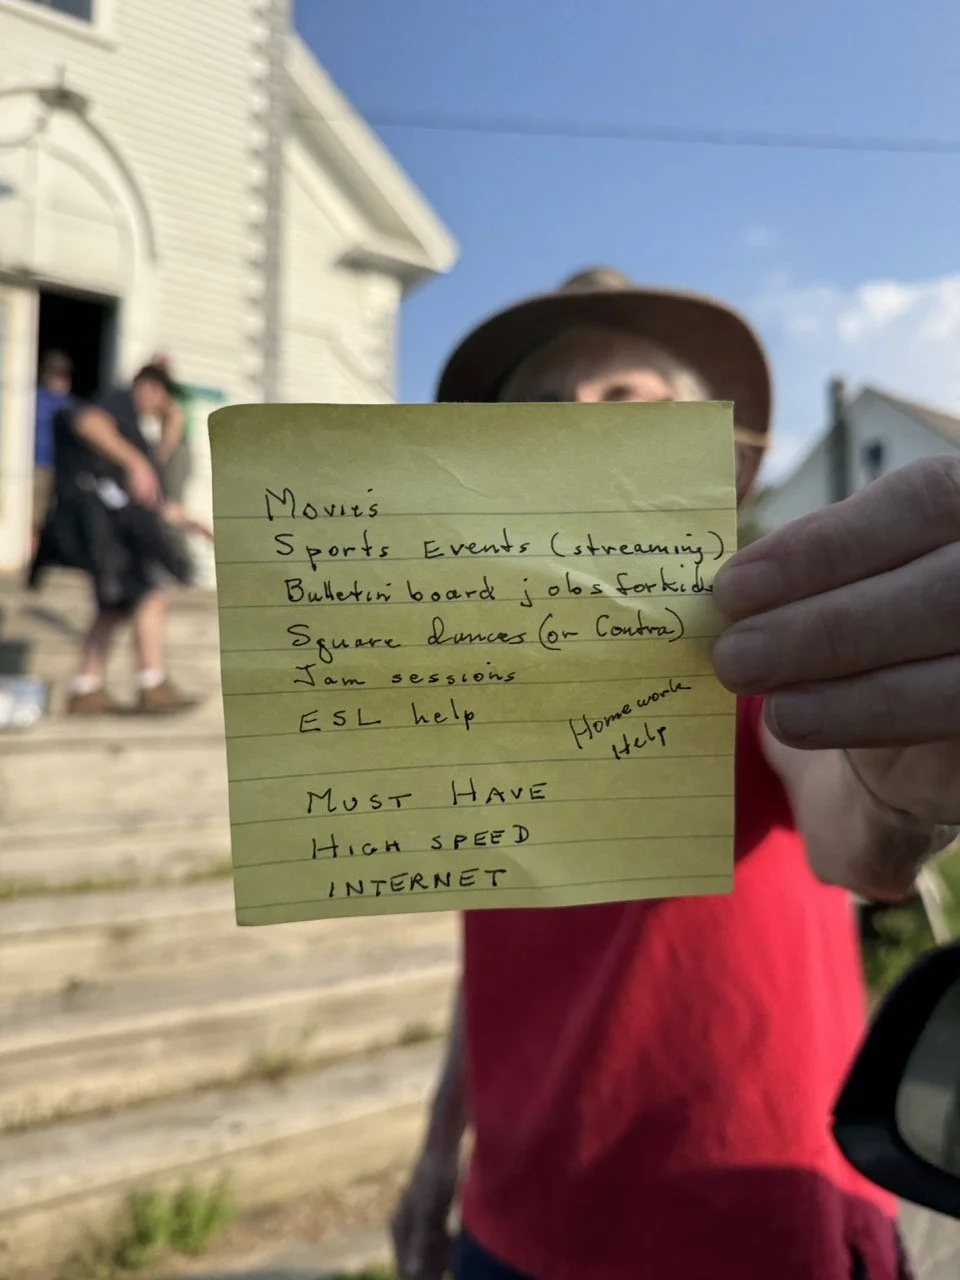 Movies
Sports Events (streaming)
Bulletin board jobs for kids
Square dances (or Contra)
Jam sessions
ESL help
Homework
Help
MUST HAVE
HIGH SPEED
INTERNET